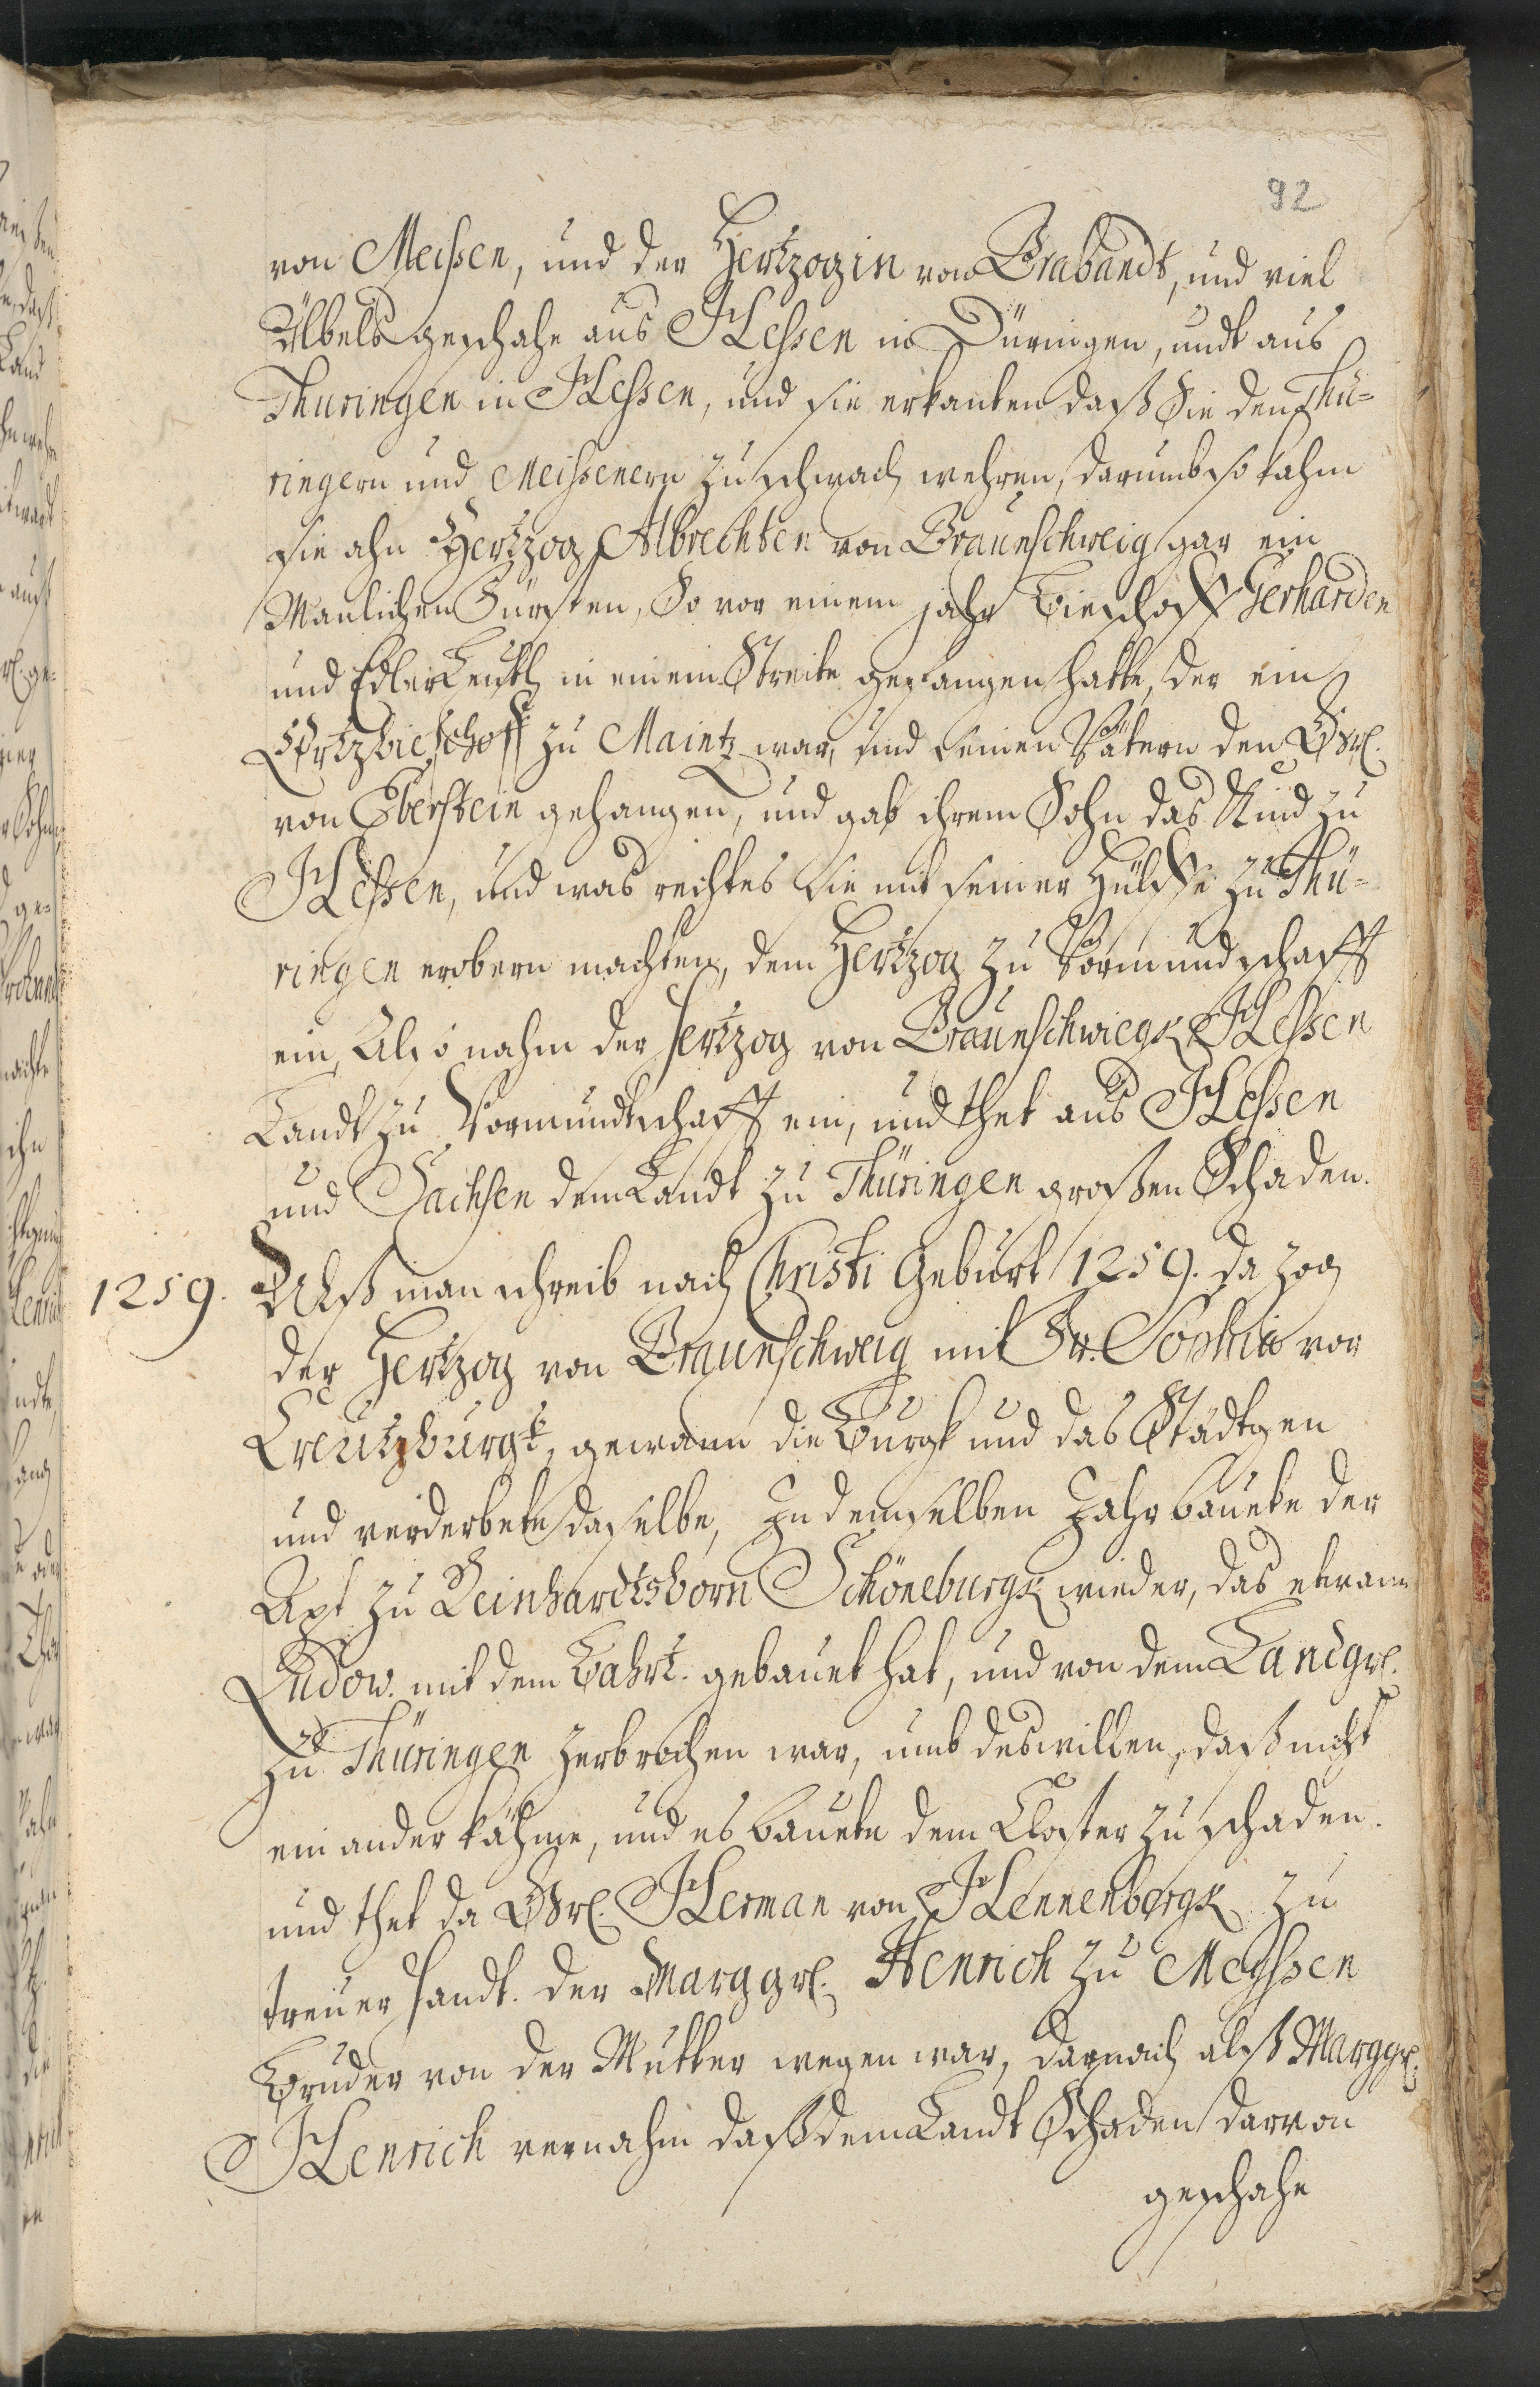 92
von Meissen, und der Hertzogin von Brabandt, und viel
Ubels geschahe aus Hessen in Düringen, undt aus
Thuringen in Hessen, und sie erkanten daß Sie den Thü-
ringern und Meissenern zu schwach wehren, darumb so kahm
sie ahn Hertzog Albrechten von Braunschweig gar ein
Manlichen Fürsten, So vor einem jahr Bieschoff Gerharden
und Edler Leuthe in einem Streite gefangen hatte, der ein
Ertzbischoff zu Maintz war, und seinen Vätern den Gr.
von Eberstein gehangen, und gab ihrem Sohn das Kind zu
Hessen, und was rechtes sie mit seiner Hülffe zu Thü-
ringen erobern machten, dem Hertzog zu Vormundschafft
ein, Also nahm der Hertzog von Braunschwiegk Hessen
Landt zu Vormundtschafft ein, und thet aus Hessen
und Sachsen dem Landt zu Thüringen großen Schaden.
1259. Alß man schreib nach Christi Geburt 1259. da zog
der Hertzog von Braunschweig mit Fr. Sophia vor
Creutzburgk, gewann die Burgk und das Städtgen
und verderbete daselbe, In demselben Jahr bauete der
Apt zu Reinhardtsborn Schöneburgk wieder, das etwann
Ludow. mit dem Bahrt. gebauet hat, und von dem Landgr.
zu Thüringen zerbrochen war, umb deswillen, daß nicht
ein ander kähme, und es bauete dem Closter zu schaden.
und thet da Gr. Herman von Hennenbergk zu
treuer Handt. der Marggr. Henrich zu Meyssen
Bruder von der Mutter wegen war, darnach alß Marggr.
Henrich vernahm daß dem Landt Schaden darvon
geschahe